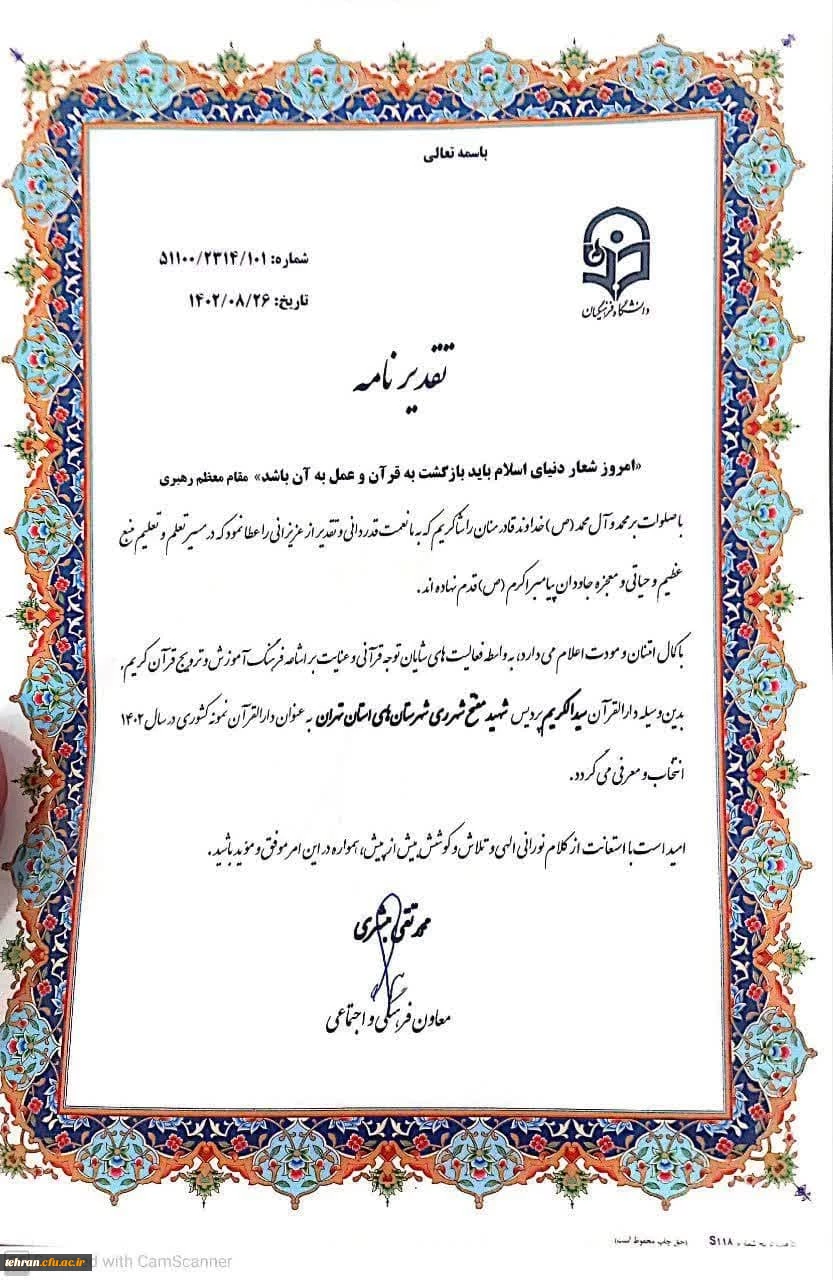 باسمه تعالی
دانشگاه فرهنگیان
شماره: ۵۱۱۰۰/۲۳۱۴/۱۰۱
تاریخ: ۱۴۰۲/۰۸/۲۶
تقدیر نامه
«امروز شعار دنیای اسلام باید بازگشت به قرآن و عمل به آن باشد» مقام معظم رهبری
با صلوات بر محمد و آل محمد (ص) خداوند قادر منان را شاکریم که به ما نعمت قدردانی و تقدیر از عزیزانی را عطا نمود که در مسیر تعلم و تعلیم منبع
عظیم و حیاتی و معجزه جاودان پیامبر اکرم (ص) قدم نهاده اند.
با کمال امتنان و مودت اعلام می دارد، به واسطه فعالیت های شایان توجه قرآنی و عنایت بر اشاعه فرهنگ آموزش و ترویج قرآن کریم،
بدین وسیله دارالقرآن سیدالکریم پردیس شهید مفتح شهرری شهرستان های استان تهران به عنوان دارالقرآن نمونه کشوری در سال ۱۴۰۲
انتخاب و معرفی می گردد.
امید است با استعانت از کلام نورانی الهی و تلاش و کوشش بیش از پیش، همواره در این امر موفق و مؤید باشید.
محمد تقی مبشری
معاون فرهنگی و اجتماعی
S۱۱۸
(حق چاپ محفوظ است)
tehran.cfu.ac.ir
d with CamScanner